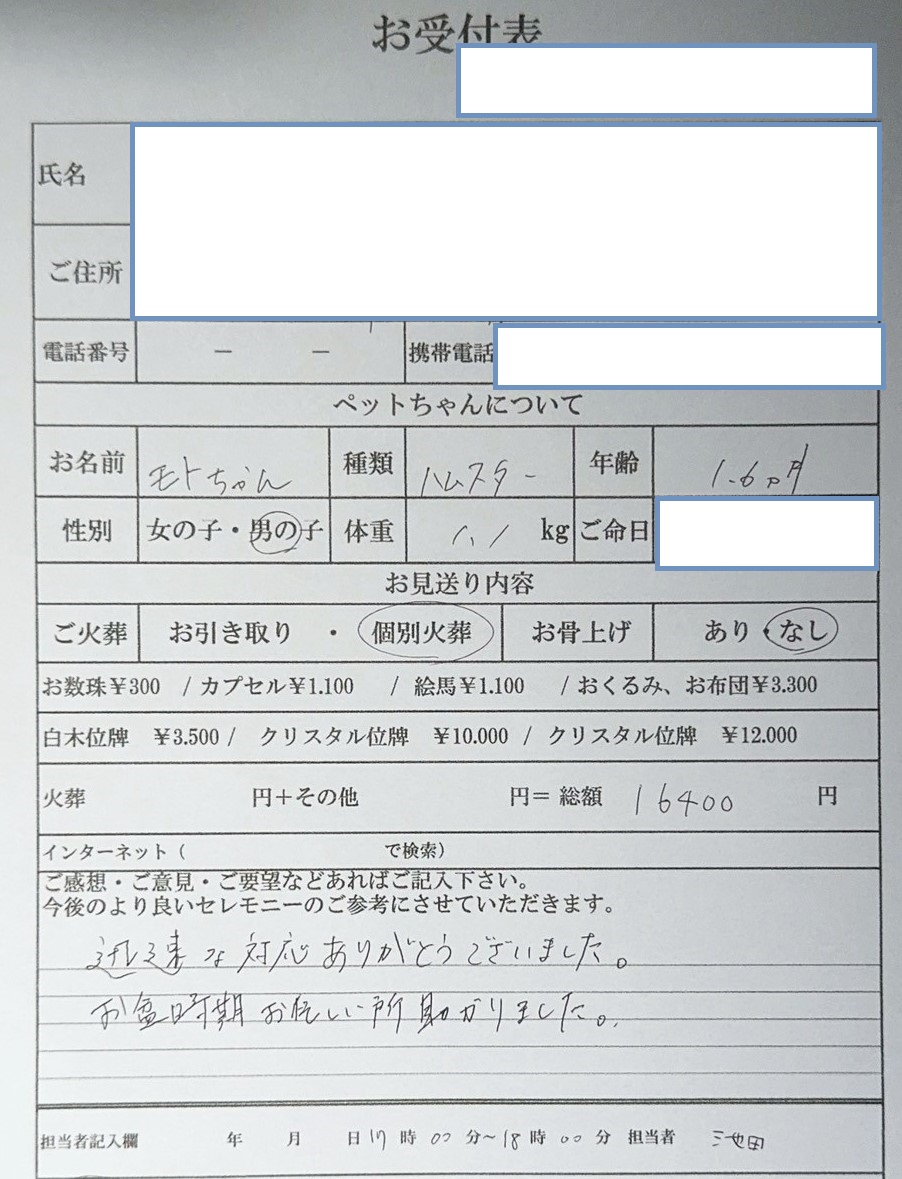 お受付表
氏名
ご住所
電話番号 － － 携帯電話
ペットちゃんについて
お名前 モトちゃん 種類 ハムスター 年齢 1.6ヵ月
性別 女の子・男の子 体重 kg ご命日
お見送り内容
ご火葬 お引き取り ・ 個別火葬 お骨上げ あり・なし
お数珠¥300 / カプセル¥1.100 / 絵馬¥1.100 / おくるみ、お布団¥3.300
白木位牌 ¥3.500 / クリスタル位牌 ¥10.000 / クリスタル位牌 ¥12.000
火葬 円＋その他 円＝ 総額 16400 円
インターネット（ で検索）
ご感想・ご意見・ご要望などあればご記入下さい。
今後のより良いセレモニーのご参考にさせていただきます。
迅速な対応ありがとうございました。
お盆時期お忙しい所助かりました。
担当者記入欄 年 月 日 17 時 00 分～18 時 00 分 担当者 池田